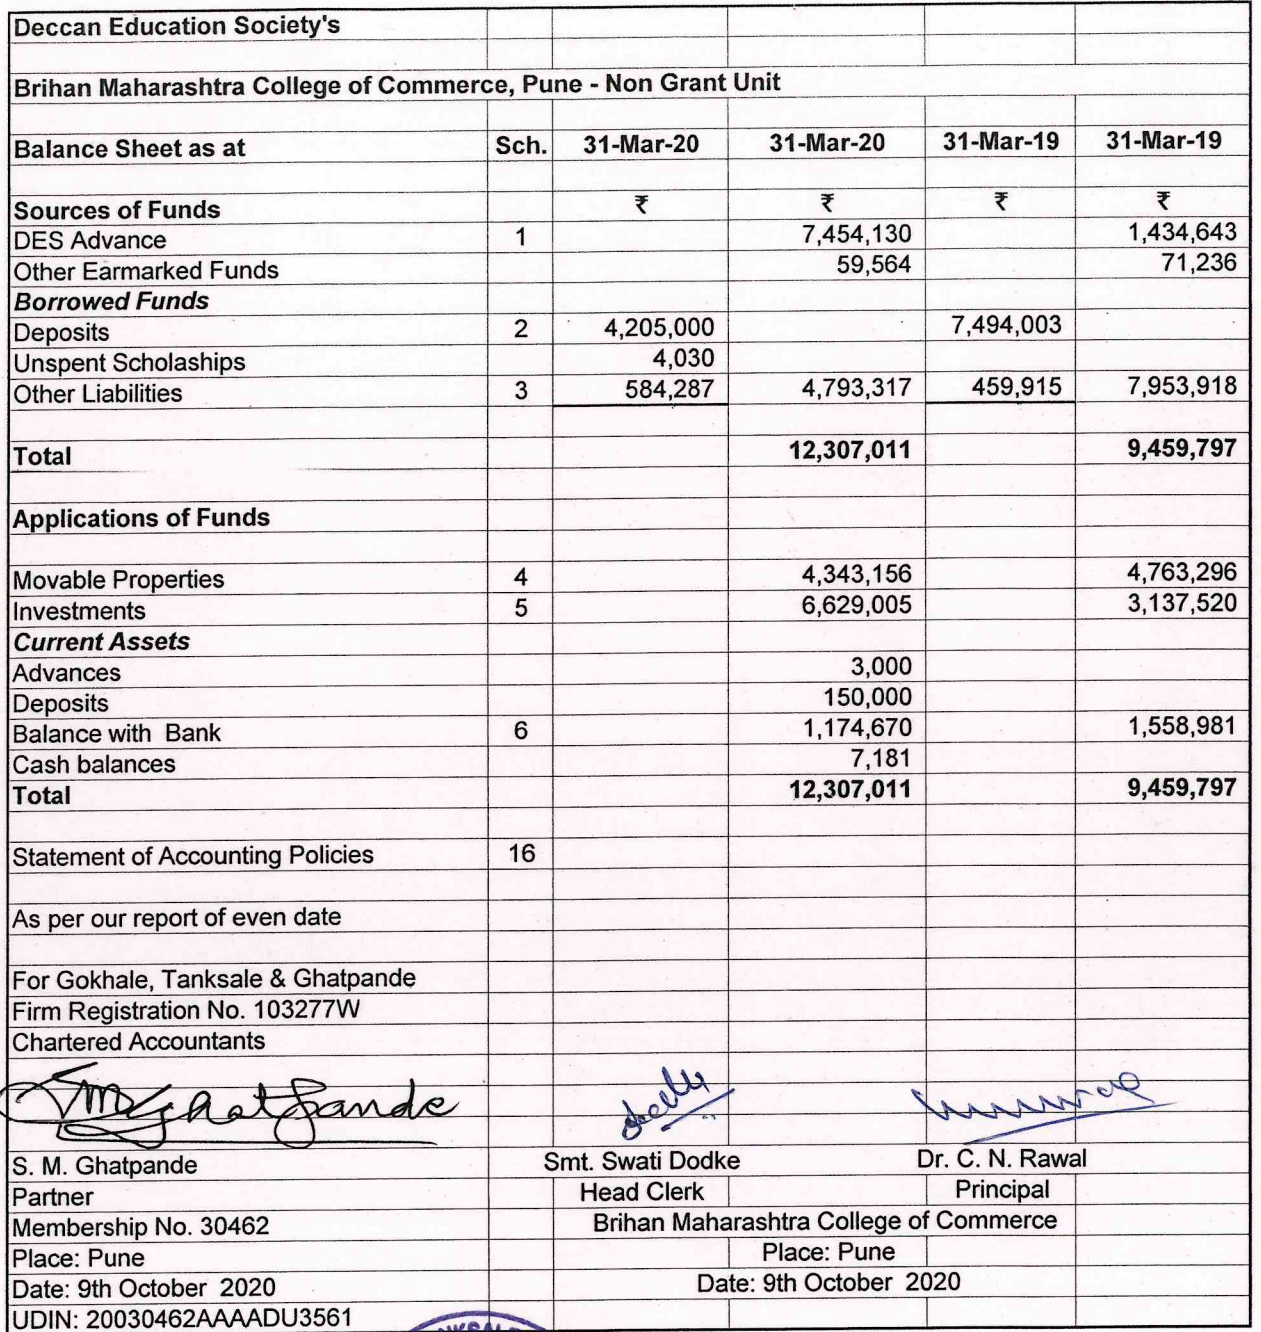 Deccan Education Society's
Brihan Maharashtra College of Commerce, Pune - Non Grant Unit
Balance Sheet as at Sch. 31-Mar-20 31-Mar-20 31-Mar-19 31-Mar-19
Sources of Funds ₹ ₹ ₹ ₹
DES Advance 1 7,454,130 1,434,643
Other Earmarked Funds 59,564 71,236
Borrowed Funds
Deposits 2 4,205,000 7,494,003
Unspent Scholaships 4,030
Other Liabilities 3 584,287 4,793,317 459,915 7,953,918
Total 12,307,011 9,459,797
Applications of Funds
Movable Properties 4 4,343,156 4,763,296
Investments 5 6,629,005 3,137,520
Current Assets
Advances 3,000
Deposits 150,000
Balance with Bank 6 1,174,670 1,558,981
Cash balances 7,181
Total 12,307,011 9,459,797
Statement of Accounting Policies 16
As per our report of even date
For Gokhale, Tanksale & Ghatpande
Firm Registration No. 103277W
Chartered Accountants
SMGhatpande
S. M. Ghatpande Smt. Swati Dodke Dr. C. N. Rawal
Partner Head Clerk Principal
Membership No. 30462 Brihan Maharashtra College of Commerce
Place: Pune Place: Pune
Date: 9th October 2020 Date: 9th October 2020
UDIN: 20030462AAAADU3561